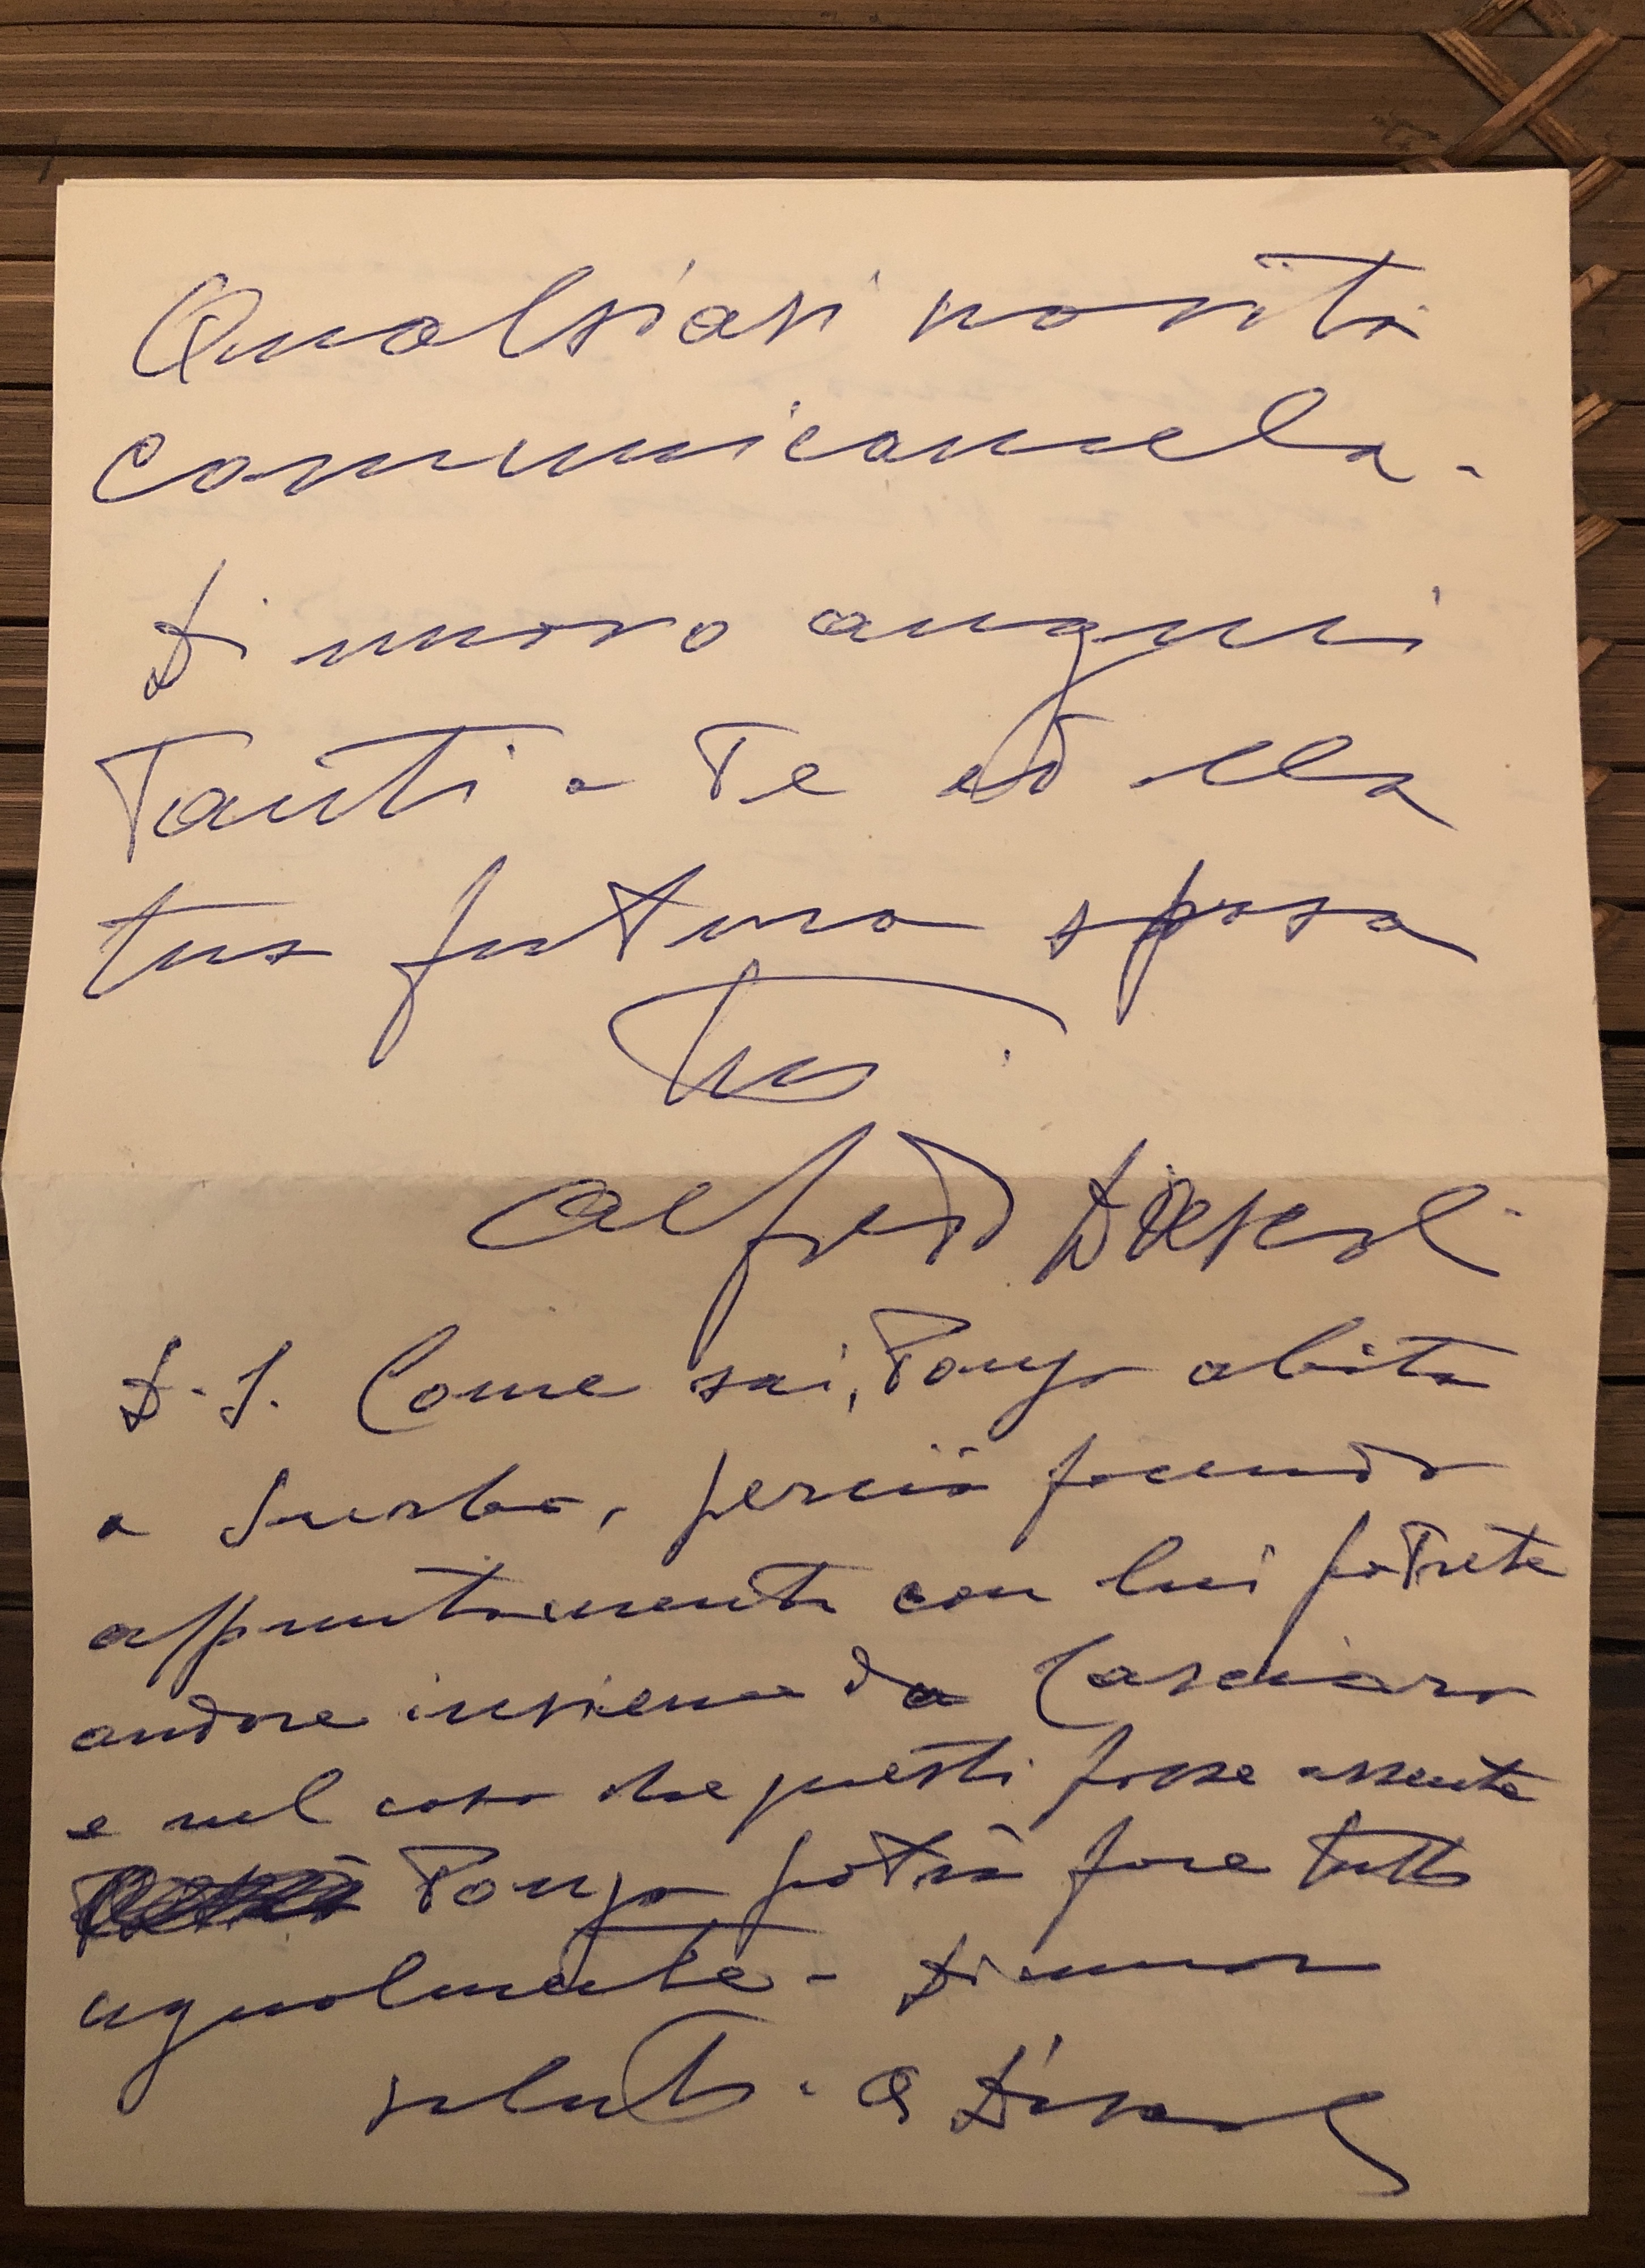 Qualsiasi novità
comunicamela -
Di nuovo auguri
Tanti a Te ed alla
tua futura sposa
Tuo
Alfredo
P.S. Come sai, Ponzo abita
a Surbo, perciò facendo
appuntamento con lui potrete
andare insieme da Casciaro
e nel caso che questi fosse assente
Ponzo potrà fare tutto
ugualmente - Di nuovo
saluti. A